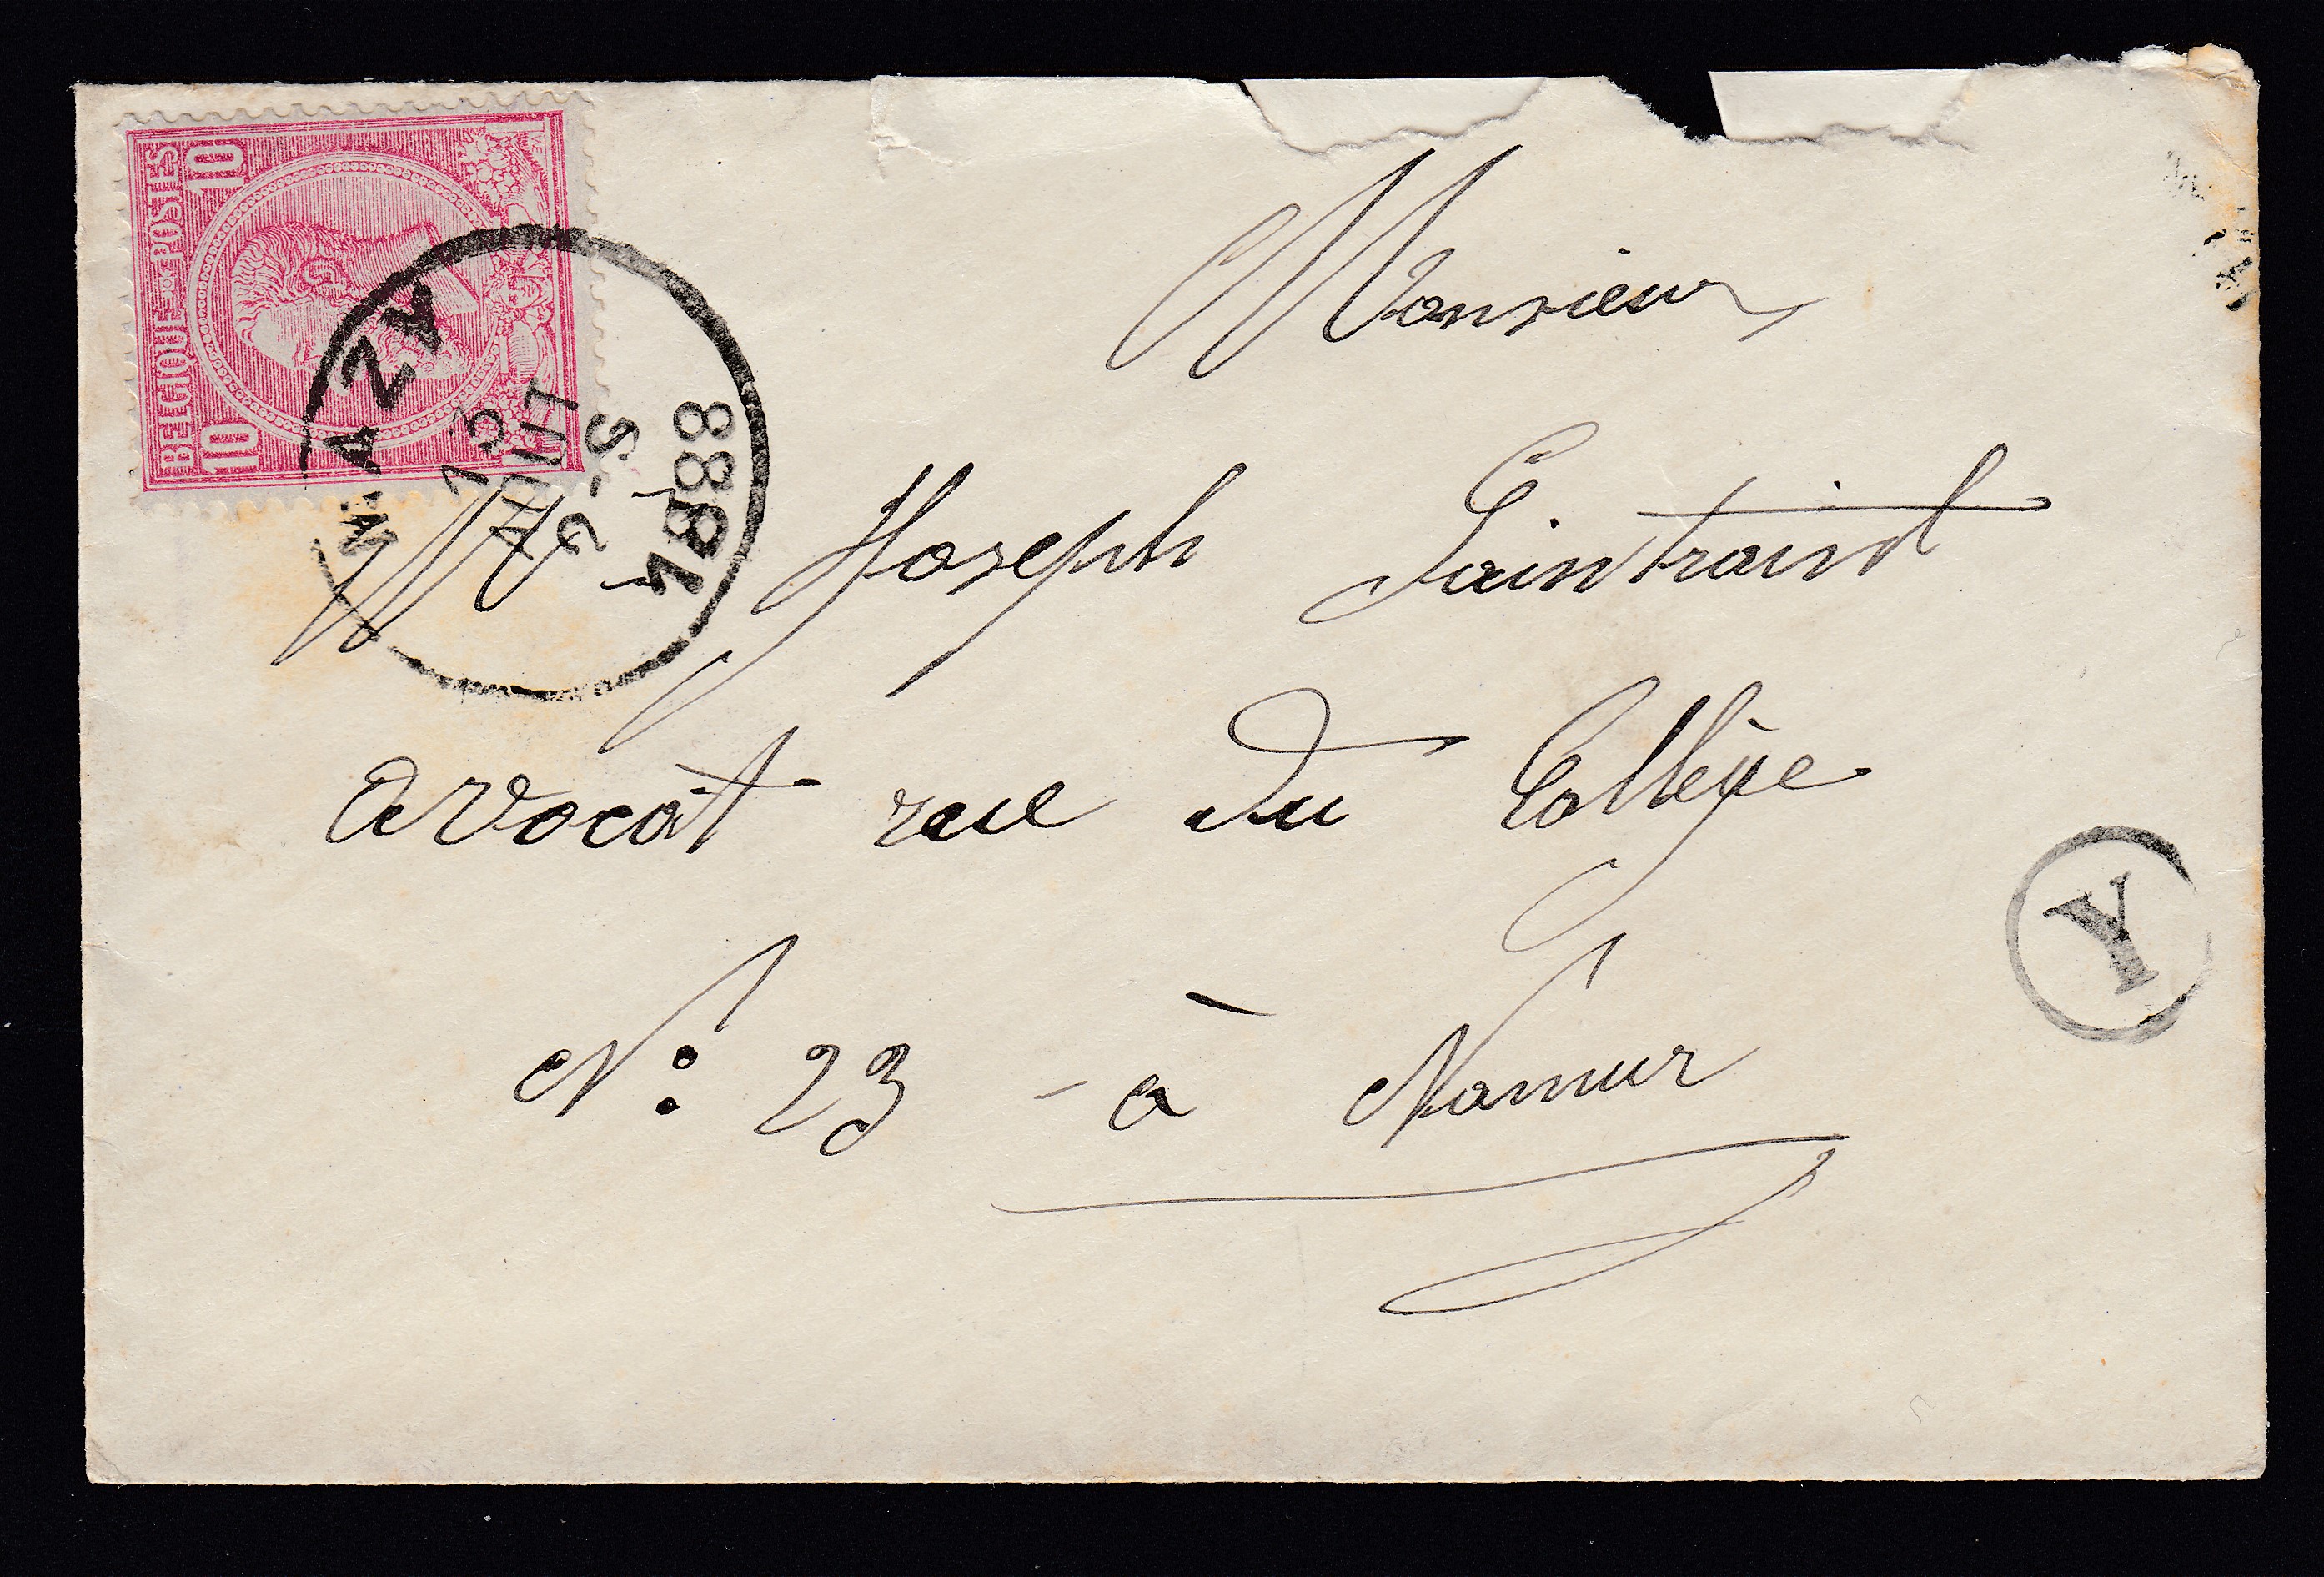 BELGIQUE POSTES
10 10
MAZY
13
JUIL
5-S
1888
Monsieur
Mr Joseph Saintraint
avocat rue du Collège
N° 23 - à Namur
Y